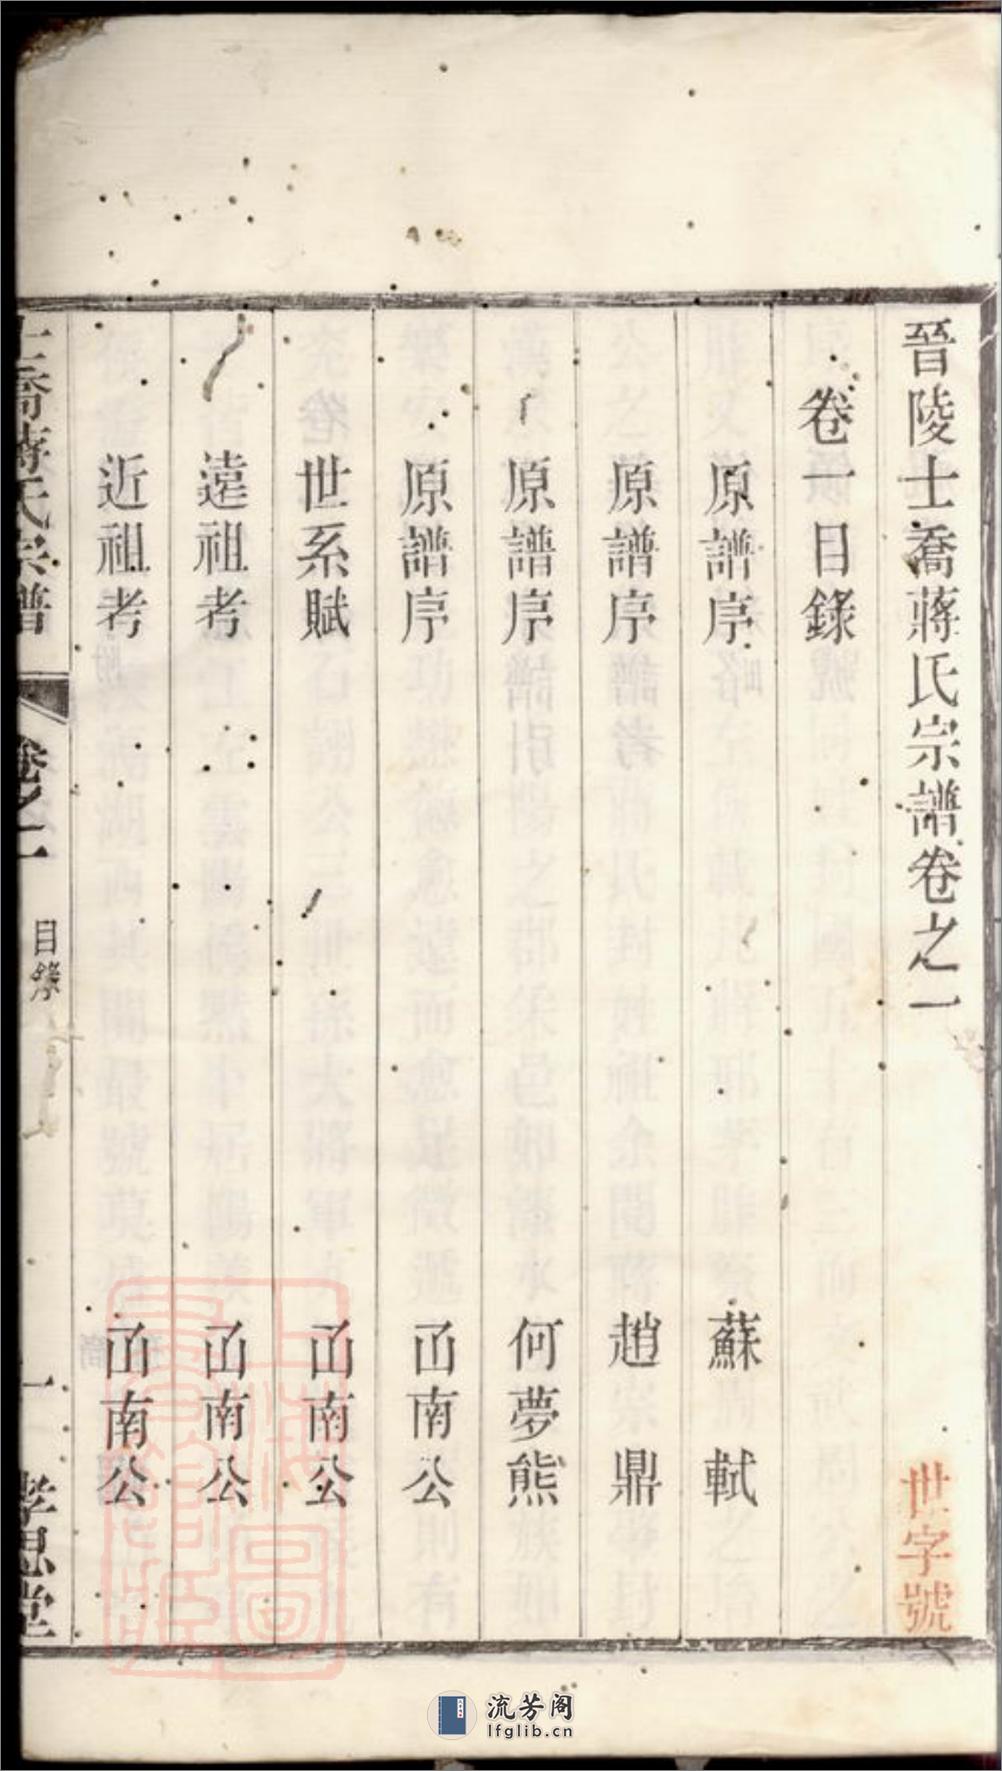 晉陵士喬蔣氏宗譜卷之一
世字號
卷一目錄
原譜序 蘇軾
原譜序 趙鼎
原譜序 何夢熊
原譜序 凾南公
世系賦 凾南公
遠祖考 凾南公
近祖考 凾南公
士喬蔣氏宗譜 卷之一 目錄 一 孝思堂
流芳阁
lfglib.cn